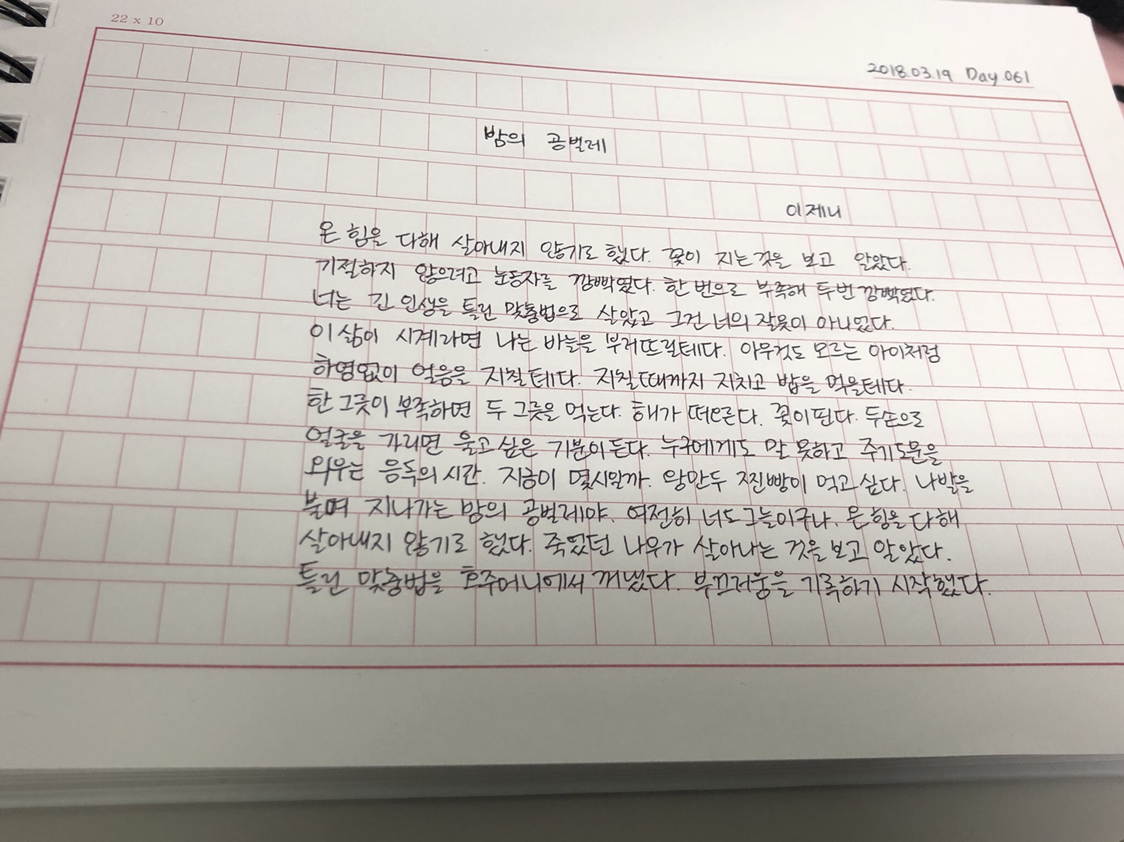 22 x 10
2018.03.19 Day 061
밤의 공벌레
이제니
온 힘을 다해 살아내지 않기로 했다. 꽃이 지는 것을 보고 알았다.
기절하지 않으려고 눈동자를 깜빡였다. 한 번으로 부족해 두번 깜빡였다.
너는 긴 인생을 틀린 맞춤법으로 살았고 그건 너의 잘못이 아니었다.
이 삶이 시계라면 나는 바늘을 부러뜨릴테다. 아무것도 모르는 아이처럼
하염없이 얼음을 지칠 테다. 지칠때까지 지치고 밥을 먹을테다.
한 그릇이 부족하면 두 그릇을 먹는다. 해가 떠오른다. 꽃이 핀다. 두손으로
얼굴을 가리면 울고 싶은 기분이 든다. 누구에게도 말 못하고 주기도문을
외우는 음독의 시간. 지금이 몇시일까. 왕만두 찐빵이 먹고 싶다. 나발을
불며 지나가는 밤의 공벌레야. 여전히 너도 그늘이구나. 온 힘을 다해
살아내지 않기로 했다. 죽었던 나무가 살아나는 것을 보고 알았다.
틀린 맞춤법을 호주머니에서 꺼냈다. 부끄러움을 기록하기 시작했다.